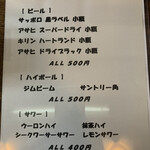 [ ビール ]
サッポロ 黒ラベル 小瓶
アサヒ スーパードライ 小瓶
キリン ハートランド 小瓶
アサヒ ドライブラック 小瓶
ALL 500円
[ ハイボール ]
ジムビーム サントリー角
ALL 500円
[ サワー ]
ウーロンハイ 緑茶ハイ
シークワーサーサワー レモンサワー
ALL 400円